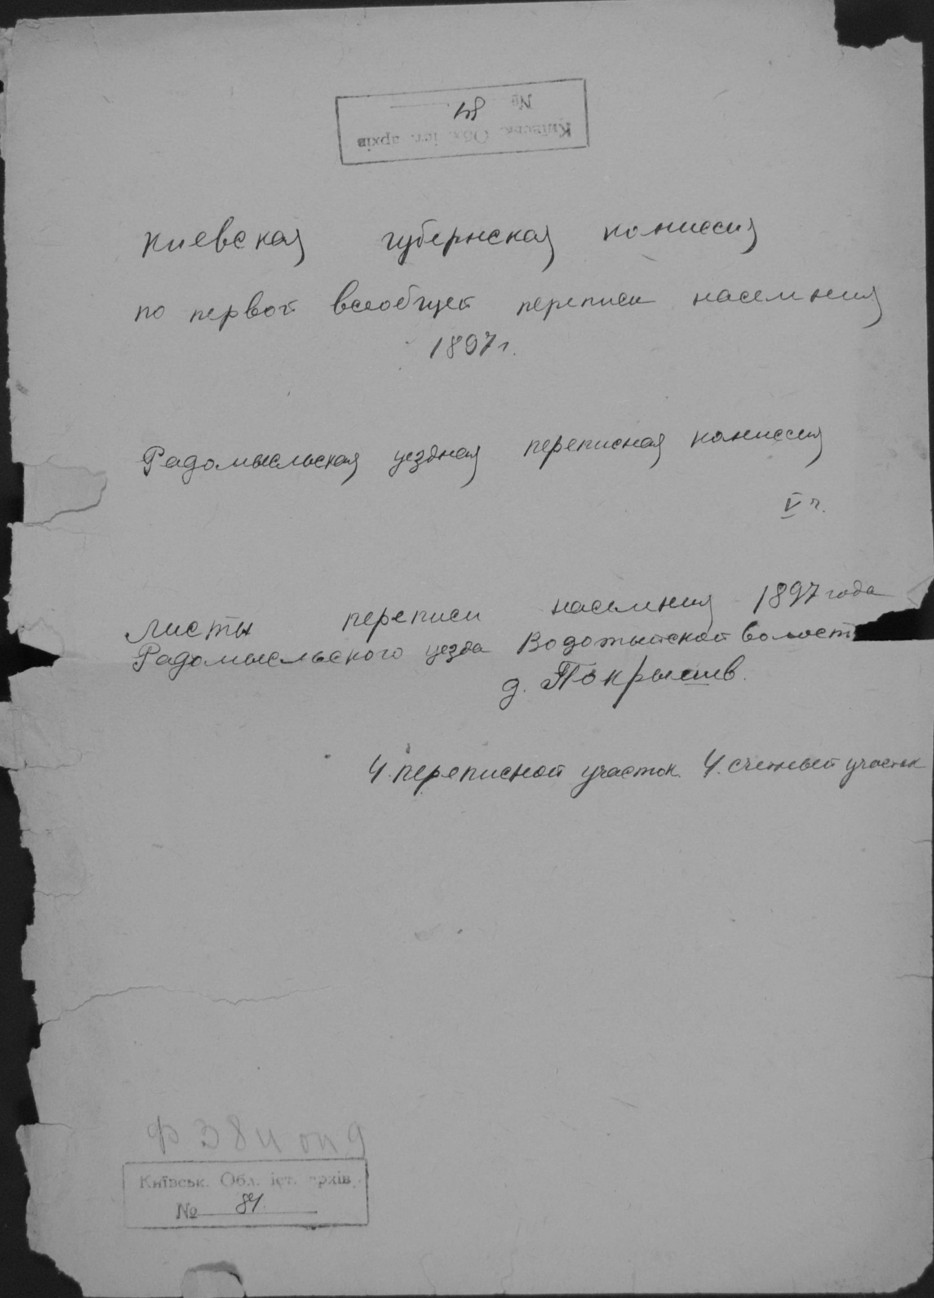 № 84
Київськ. Обл. іст. архів
Киевская губернская комиссия
по первой всеобщей переписи населения
1897 г.
Радомысльская уездная переписная комиссия
V г.
Листы переписи населения 1897 года
Радомысльского уезда Водотыйской волост
д. Покрышев.
4. переписной участок 4. счетный участок
Ф 384 оп 9
Київськ. Обл. іст. архів
№ 84